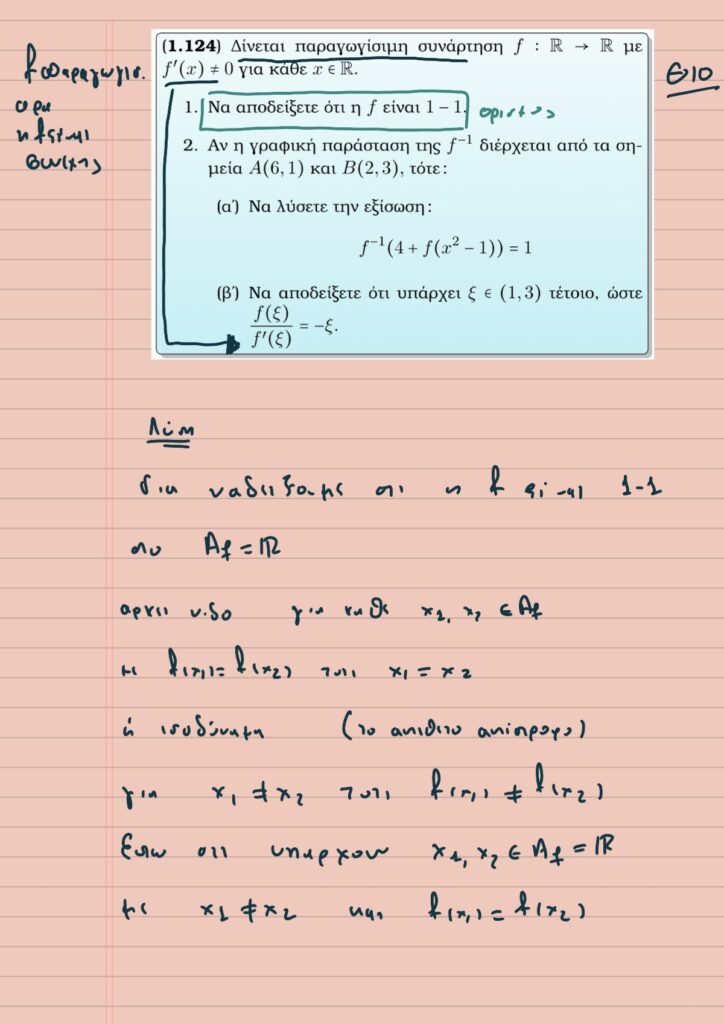 f παραγωγισ.
αρα
η f είναι
συνεχης
(1.124) Δίνεται παραγωγίσιμη συνάρτηση f : ℝ → ℝ με
f′(x) ≠ 0 για κάθε x ∈ ℝ.
1. Να αποδείξετε ότι η f είναι 1 − 1.
ορισμος
2. Αν η γραφική παράσταση της f⁻¹ διέρχεται από τα ση-
μεία A(6, 1) και B(2, 3), τότε:
(α΄) Να λύσετε την εξίσωση:
f⁻¹(4 + f(x² − 1)) = 1
(β΄) Να αποδείξετε ότι υπάρχει ξ ∈ (1, 3) τέτοιο, ώστε
f(ξ)/f′(ξ) = −ξ.
Λύση
για να δειξουμε οτι η f είναι 1-1
στο A_f = ℝ
αρκει ν.δο για καθε x₁, x₂ ∈ A_f
με f(x₁) = f(x₂) τοτε x₁ = x₂
ή ισοδύναμα (το αντιθετο αντίστροφο)
για x₁ ≠ x₂ τοτε f(x₁) ≠ f(x₂)
Εστω οτι υπαρχουν x₁, x₂ ∈ A_f = ℝ
με x₁ ≠ x₂ και f(x₁) = f(x₂)